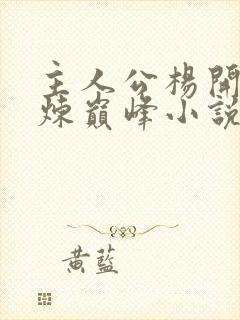 主人公楊開
煉巔峰小說
黃藍